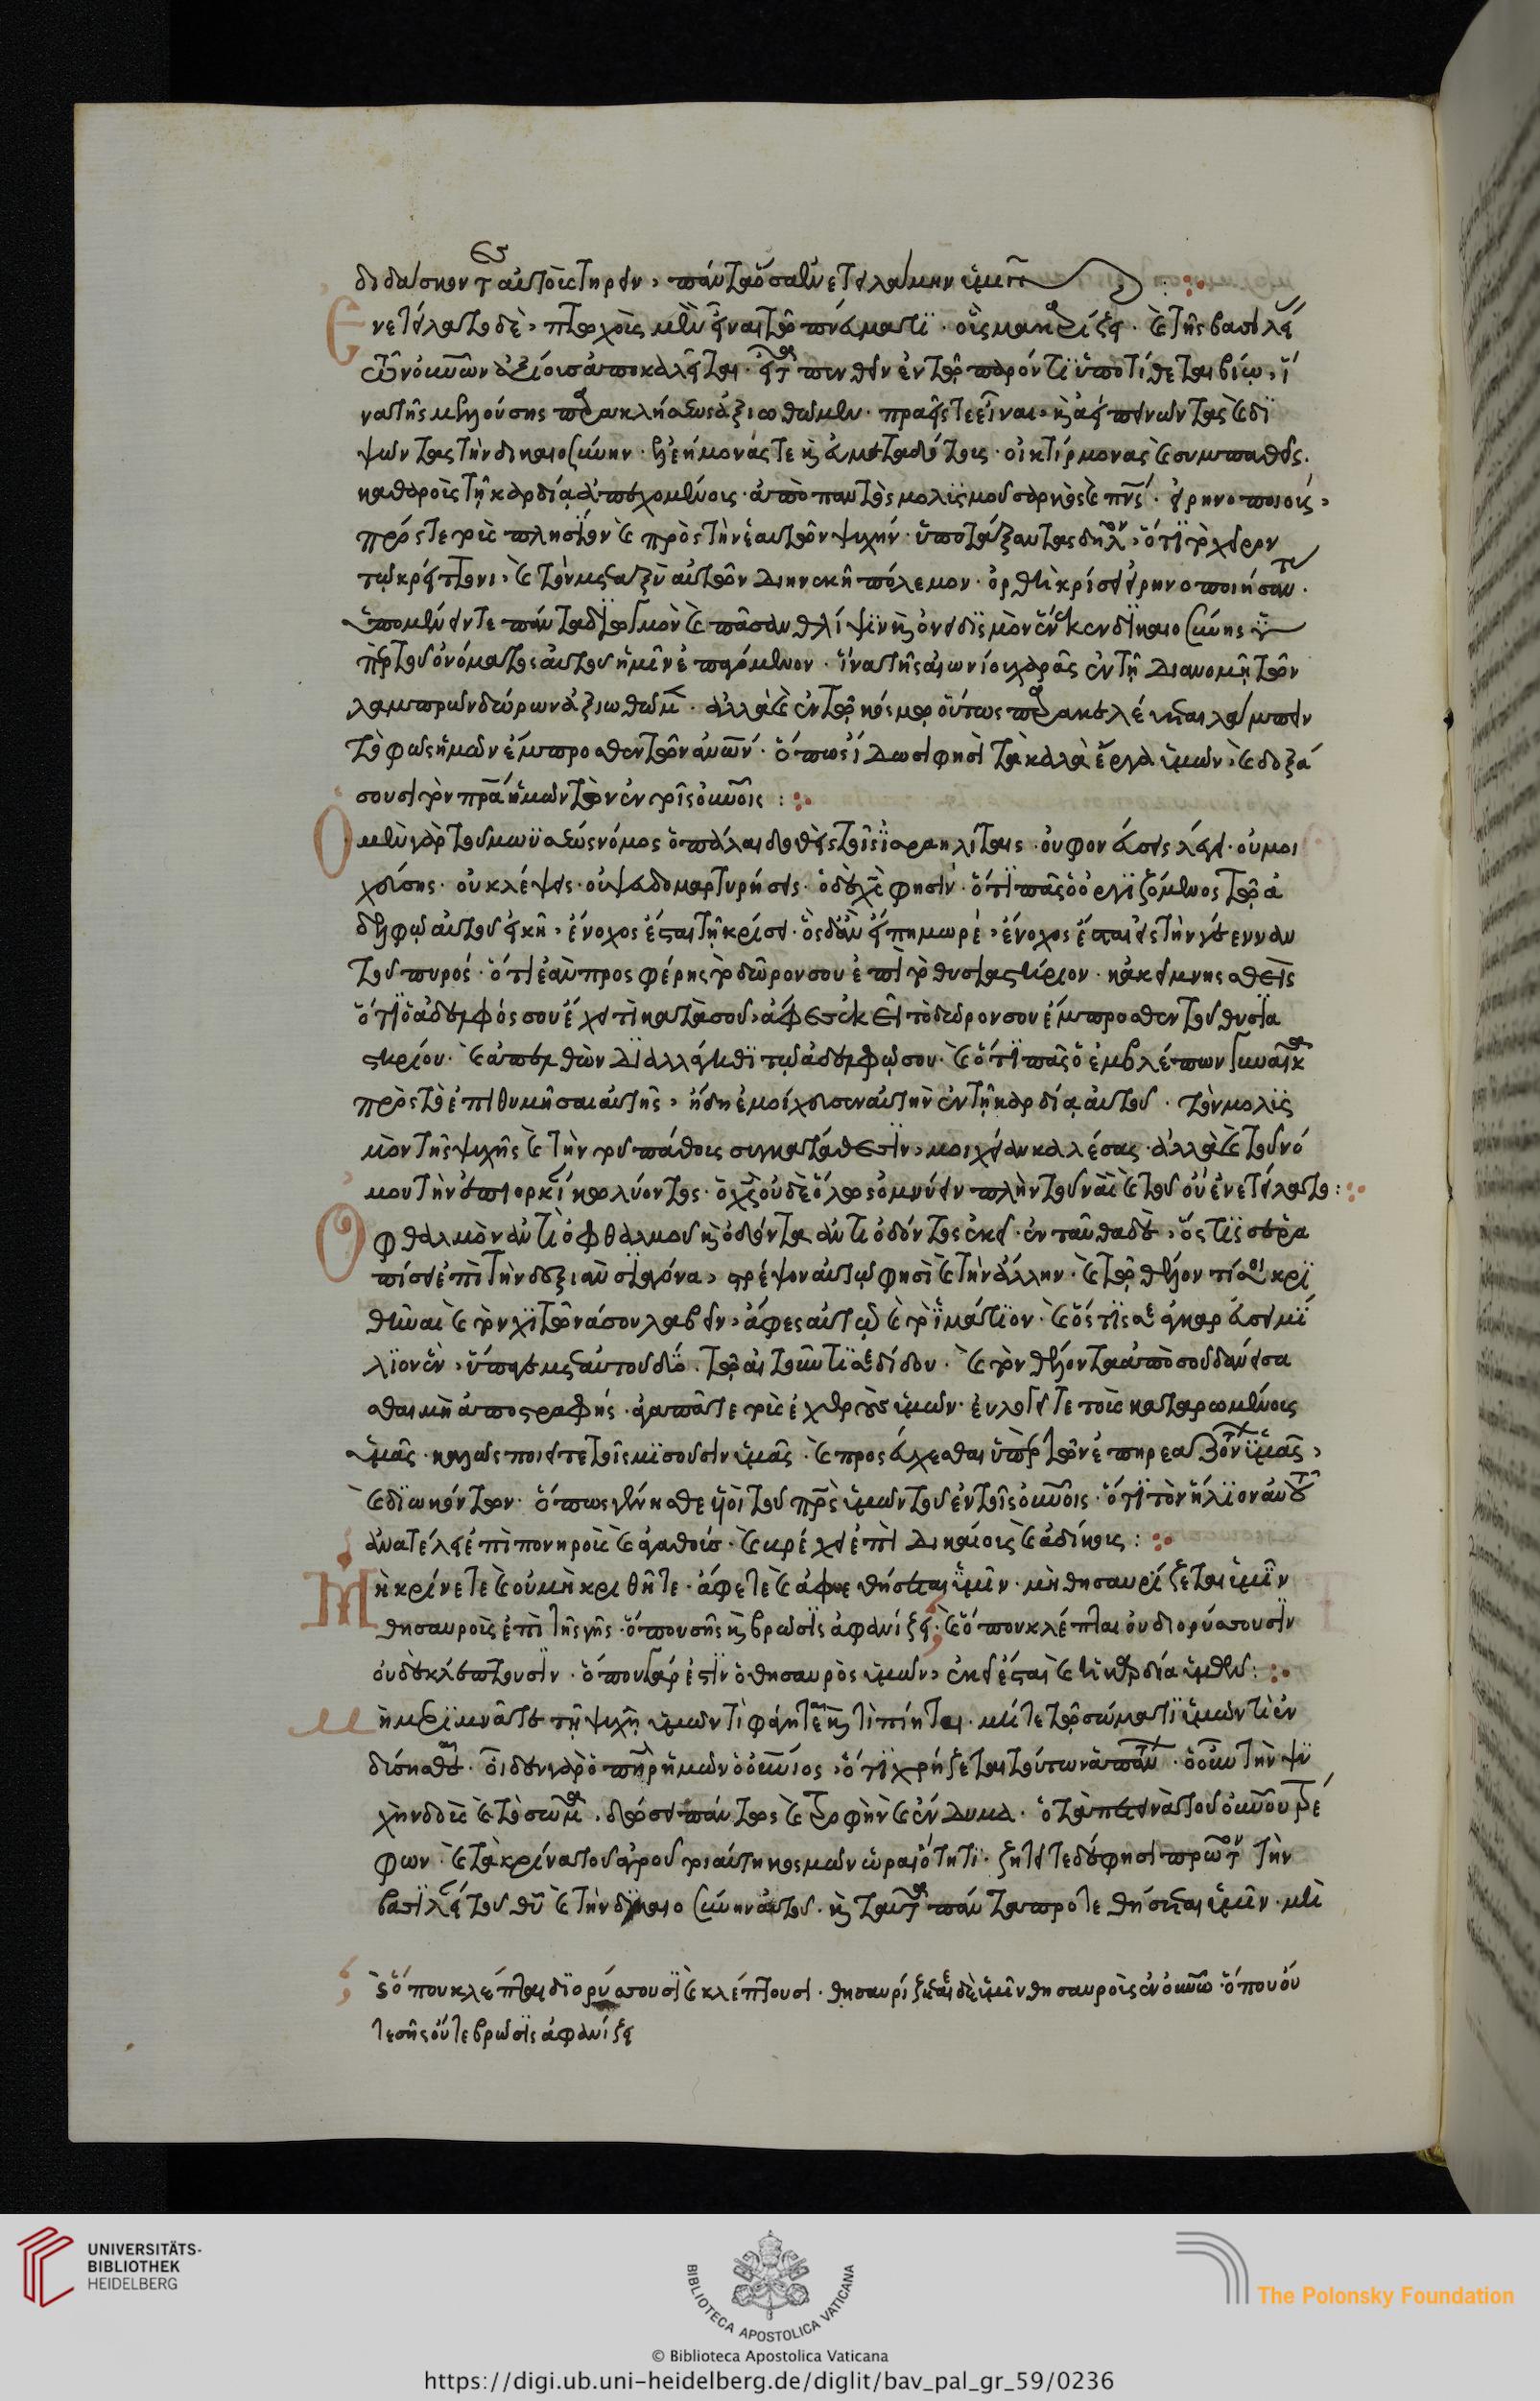 διδάσκοντες αὐτοὺς τηρεῖν, πάντα ὅσα ἐνετειλάμην ὑμῖν
Ἐνετείλατο δὲ, πτωχοὺς μὲν εἶναι τῷ πνεύματι· οὓς μακαρίζει· καὶ τῆς βασιλεί
τῶν οὐνῶν ἀξίους ἀποκαλεῖται· εἶτα πενθεῖν ἐν τῷ παρόντι ὑποτίθεται βίω, ἵ
να τῆς μελλούσης παρακλήσεως ἀξιωθῶμεν· πραεῖς τε εἶναι, καὶ πεινῶντας καὶ δι
ψῶντας τὴν δικαιοσύνην· ἐλεήμονάς τε καὶ εὐμεταδότους· οἰκτίρμονας καὶ συμπαθεῖς·
καθαροὺς τῇ καρδίᾳ ἀπεχομένους· ἀπὸ παντὸς μολυσμοῦ σαρκὸς καὶ πνς· εἰρηνοποιοὺς,
πρός τε τοὺς πλησίον καὶ πρὸς τὴν ἑαυτῶν ψυχήν· ὑποτάξαντας δηλ, ὅτι τὸ χεῖρον
τῷ κρείττονι, καὶ τὸν μεταξὺ αὐτῶν διηνεκῆ πόλεμον· ὀρθῇ κρίσει εἰρηνοποιήσαντ·
ὑπομένειν τε πάντα διωγμὸν καὶ πᾶσαν θλίψιν καὶ ὀνειδισμὸν ἕνεκεν δικαιοσύνης
ὑπὲρ τοῦ ὀνόματος αὐτοῦ ἡμῖν ἐπαγόμενον· ἵνα τῆς αἰωνίου χαρᾶς ἐν τῇ διανομῇ τῶν
λαμπρῶν δώρων ἀξιωθῶμ· ἀλλὰ καὶ ἐν τῷ κόσμῳ οὕτως παρακελεύεται λάμπειν
τὸ φῶς ἡμῶν ἔμπροσθεν τῶν ἀνων· ὅπως ἴδωσι φησὶ τὰ καλὰ ἔργα ὑμῶν, καὶ δοξά
σουσι τὸν πρα ἡμῶν τὸν ἐν τοῖς οὐνοις :
Ὁ μὲν γὰρ τοῦ μωϋσέως νόμος ὁ πάλαι δοθεὶς τοῖς ἰσραηλίταις· οὐ φονεύσεις λέγει· οὐ μοι
χεύσης· οὐ κλέψεις· οὐ ψευδομαρτυρήσεις· ὁ δὲ χς φησὶν· ὅτι πᾶς ὁ ὀργιζόμενος τῷ ἀ
δελφῷ αὐτοῦ εἰκῆ, ἔνοχος ἔσται τῇ κρίσει· ὃς δ' ἂν εἴπη μωρέ, ἔνοχος ἔσται εἰς τὴν γέενναν
τοῦ πυρός· ὅτι ἐὰν προσφέρης τὸ δῶρον σου ἐπὶ τὸ θυσιαστήριον· κἀκεῖ μνησθεὶς
ὅτι ὁ ἀδελφός σου ἔχει τὶ κατὰ σοῦ, ἄφες ἐκεῖ τὸ δῶρον σου ἔμπροσθεν τοῦ θυσια
στηρίου· καὶ ἀπελθὼν διαλλάγηθι τῷ ἀδελφῷ σου· καὶ ὅτι πᾶς ὁ ἐμβλέπων γυναῖκα
πρὸς τὸ ἐπιθυμῆσαι αὐτῆς, ἤδη ἐμοίχευσεν αὐτὴν ἐν τῇ καρδίᾳ αὐτοῦ· τὸν μολυσ
μὸν τῆς ψυχῆς καὶ τὴν τοῦ πάθους συγκατάθεσιν, μοιχείαν καλέσας· ἀλλὰ καὶ τοῦ νό
μου τὴν ἐπιορκί κωλύοντος· ὁ χς οὐδὲ ὅλως ὀμνύειν πλὴν τοῦ ναὶ καὶ τοῦ οὐ ἐνετείλατο :
Ὀφθαλμὸν ἀντὶ ὀφθαλμοῦ καὶ ὀδόντα ἀντὶ ὀδόντος ἐκεῖ· ἐνταῦθα δὲ, ὅστις σε ῥα
πίσει ἐπὶ τὴν δεξιὰν σιαγόνα, στρέψον αὐτῷ φησὶ καὶ τὴν ἄλλην· καὶ τῷ θέλοντί σοι κρι
θῆναι καὶ τὸν χιτῶνά σου λαβεῖν, ἄφες αὐτῷ καὶ τὸ ἱμάτιον· καὶ ὅστις σε ἀγγαρεύσει μί
λιον ἓν, ὕπαγε μετ' αὐτοῦ δύο· τῷ αἰτοῦντί σε δίδου· καὶ τὸν θέλοντα ἀπὸ σοῦ δανείσα
σθαι μὴ ἀποστραφῆς· ἀγαπᾶτε τοὺς ἐχθροὺς ὑμῶν· εὐλογεῖτε τοὺς καταρωμένους
ὑμᾶς· καλῶς ποιεῖτε τοῖς μισοῦσιν ὑμᾶς· καὶ προσεύχεσθαι ὑπὲρ τῶν ἐπηρεαζόντων ὑμᾶς,
καὶ διωκόντων· ὅπως γένησθε υἱοὶ τοῦ πρς ὑμῶν τοῦ ἐν τοῖς οὐνοις· ὅτι τὸν ἥλιον αὐτοῦ
ἀνατέλλει ἐπὶ πονηροὺς καὶ ἀγαθούς· καὶ βρέχει ἐπὶ δικαίους καὶ ἀδίκους :
Μὴ κρίνετε καὶ οὐ μὴ κριθῆτε· ἄφετε καὶ ἀφεθήσεται ὑμῖν· μὴ θησαυρίζεται ὑμῖν
θησαυροὺς ἐπὶ τῆς γῆς· ὅπου σῆς καὶ βρῶσις ἀφανίζει· καὶ ὅπου κλέπται οὐ διορύσσουσιν
οὐδὲ κλέπτουσιν· ὅπου γάρ ἐστιν ὁ θησαυρὸς ὑμῶν, ἐκεῖ ἔσται καὶ ἡ καρδία ὑμῶν :
Μὴ μεριμνᾶτε τῇ ψυχῇ ὑμῶν τὶ φάγητε καὶ τὶ πίηται· μήτε τῷ σώματι ὑμῶν τὶ ἐν
δύσησθε· οἶδεν γὰρ ὁ πηρ ἡμῶν ὁ οὐνιος, ὅτι χρήζεται τούτων ἁπάντων· ὁ οὖν τὴν ψυ
χὴν δοὺς καὶ τὸ σῶμα, δώσει πάντως καὶ τροφὴν καὶ ἔνδυμα· ὁ τὰ πετεινὰ τοῦ οὐνοῦ τρέ
φων· καὶ τὰ κρίνα τοῦ ἀγροῦ τοιαύτη κοσμῶν ὡραιότητι· ζητεῖτε δέ φησι πρῶτον τὴν
βασιλεί τοῦ θῦ καὶ τὴν δικαιοσύνην αὐτοῦ· καὶ ταῦτα πάντα προστεθήσεται ὑμῖν· μὴ
καὶ ὅπου κλέπται διορύσσουσι καὶ κλέπτουσι· θησαυρίζεται δὲ ὑμῖν θησαυροὺς ἐν οὐνῶ· ὅπου οὔ
τε σῆς οὔτε βρῶσις ἀφανίζει
UNIVERSITÄTS-
BIBLIOTHEK
HEIDELBERG
BIBLIOTECA APOSTOLICA VATICANA
The Polonsky Foundation
© Biblioteca Apostolica Vaticana
https://digi.ub.uni-heidelberg.de/diglit/bav_pal_gr_59/0236